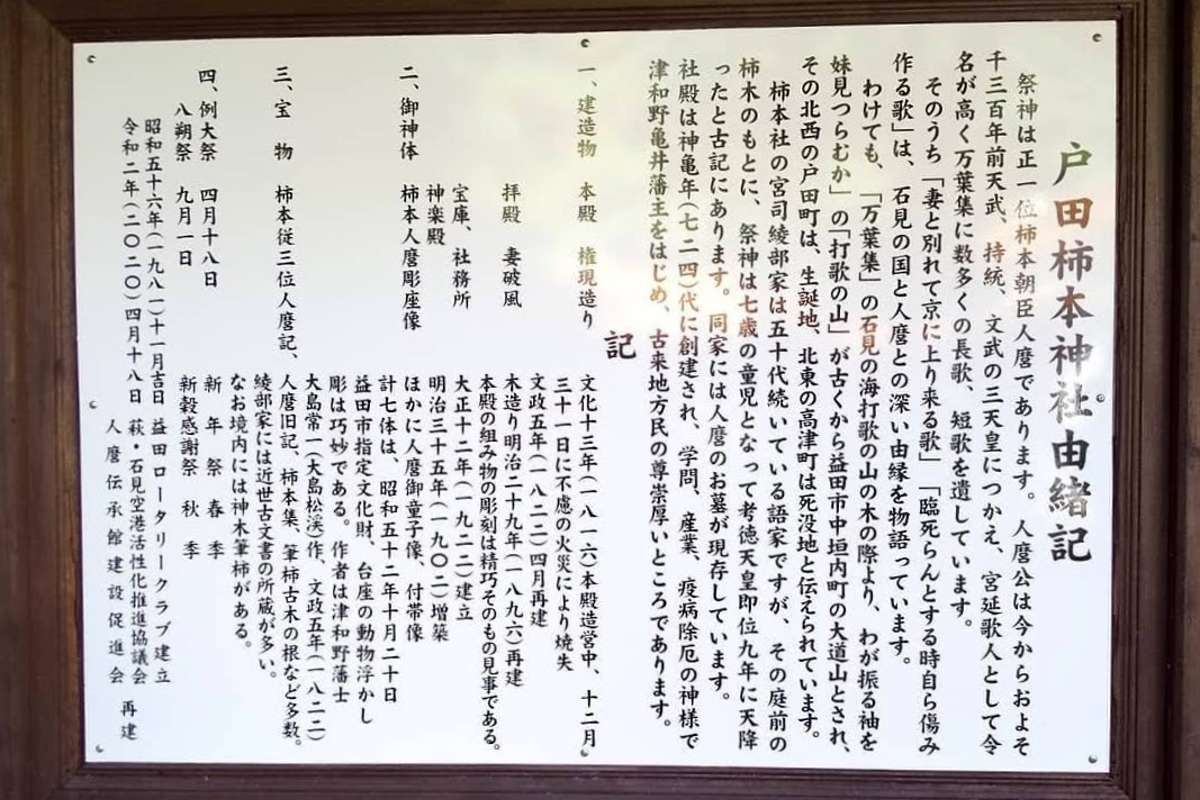 戸田柿本神社由緒記
祭神は正一位柿本朝臣人麿であります。人麿公は今からおよそ
千三百年前天武、持統、文武の三天皇につかえ、宮延歌人として令
名が高く万葉集に数多くの長歌、短歌を遺しています。
そのうち「妻と別れて京に上り来る歌」「臨死らんとする時自ら傷み
作る歌」は、石見の国と人麿との深い由縁を物語っています。
わけても、「万葉集」の石見の海打歌の山の木の際より、わが振る袖を
妹見つらむか」の「打歌の山」が古くから益田市中垣内町の大道山とされ、
その北西の戸田町は、生誕地、北東の高津町は死没地と伝えられています。
柿本社の宮司綾部家は五十代続いている語家ですが、その庭前の
柿木のもとに、祭神は七歳の童児となって考徳天皇即位九年に天降
ったと古記にあります。同家には人麿のお墓が現存しています。
社殿は神亀年(七二四)代に創建され、学問、産業、疫病除厄の神様で
津和野亀井藩主をはじめ、古来地方民の尊崇厚いところであります。
記
一、建造物 本殿 権現造り 文化十三年(一八一六)本殿造営中、十二月
三十一日に不慮の火災により焼失
文政五年(一八二二)四月再建
拝殿 妻破風 木造り明治二十九年(一八九六)再建
本殿の組み物の彫刻は精巧そのもの見事である。
宝庫、社務所 大正十二年(一九二二)建立
神楽殿 明治三十五年(一九〇二)増築
二、御神体 柿本人麿彫座像 ほかに人麿御童子像、付帯像
計七体は、昭和五十二年十月二十日
益田市指定文化財、台座の動物浮かし
彫は巧妙である。作者は津和野藩士
大島常一(大島松渓)作、文政五年(一八二二)
三、宝物 柿本従三位人麿記、人麿旧記、柿本集、筆柿古木の根など多数。
綾部家には近世古文書の所蔵が多い。
なお境内には神木筆柿がある。
四、例大祭 四月十八日 新年祭 春季
八朔祭 九月一日 新穀感謝祭 秋季
昭和五十六年(一九八一)十一月吉日 益田ロータリークラブ建立
令和二年(二〇二〇)四月十八日 萩・石見空港活性化推進協議会
人麿伝承館建設促進会 再建